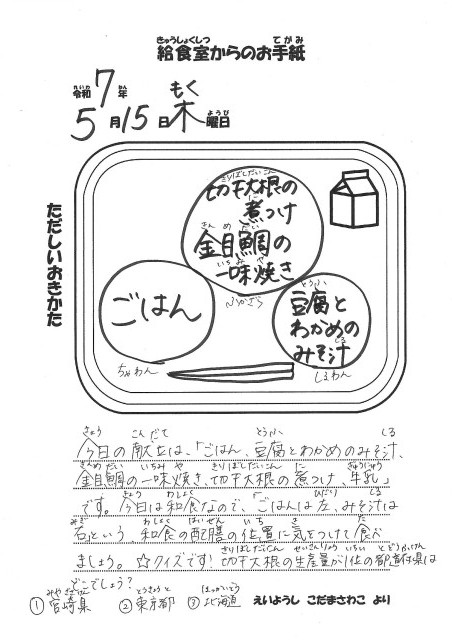 きゅうしょくしつ てがみ
給食室からのお手紙
れいわ ねん もく
令和7年
ようび
5月15日木曜日
ただしいおきかた
きりぼしだいこん
切干大根の
に
煮つけ
きんめだい
金目鯛の
いちみ や
一味焼き
ふかざら
ごはん
とうふ
豆腐と
わかめの
しる
みそ汁
ちゃわん
しるわん
きょう こんだて とうふ しる
今日の献立は、「ごはん、豆腐とわかめのみそ汁、
きんめだい いちみ や きりぼしだいこん に ぎゅうにゅう
金目鯛の一味焼き、切干大根の煮つけ、牛乳」
きょう わしょく ひだり しる
です。今日は和食なので、「ごはんは左、みそ汁は
みぎ わしょく はいぜん いち き た
右」という、和食の配膳の位置に気をつけて食べ
きりぼしだいこん せいさんりょう いちい とどうふけん
ましょう。☆クイズです!切干大根の生産量が1位の都道府県は
どこでしょう?
みやざきけん とうきょうと ほっかいどう
①宮崎県 ②東京都 ③北海道 えいようし こだまさわこ より